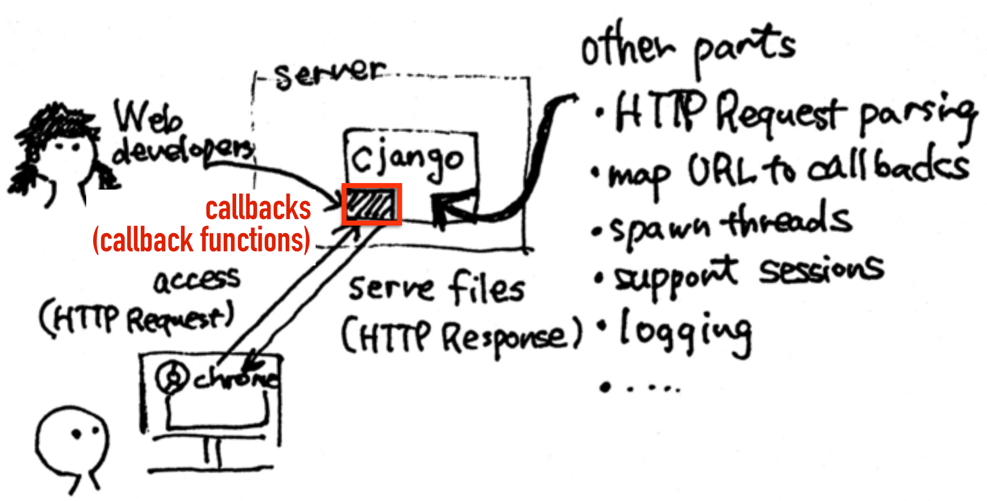 server
Web
developers
cjango
callbacks
(callback functions)
access
(HTTP Request)
serve files
(HTTP Response)
chrome
other parts
• HTTP Request parsing
• map URL to callbacks
• spawn threads
• support sessions
• logging
• .....